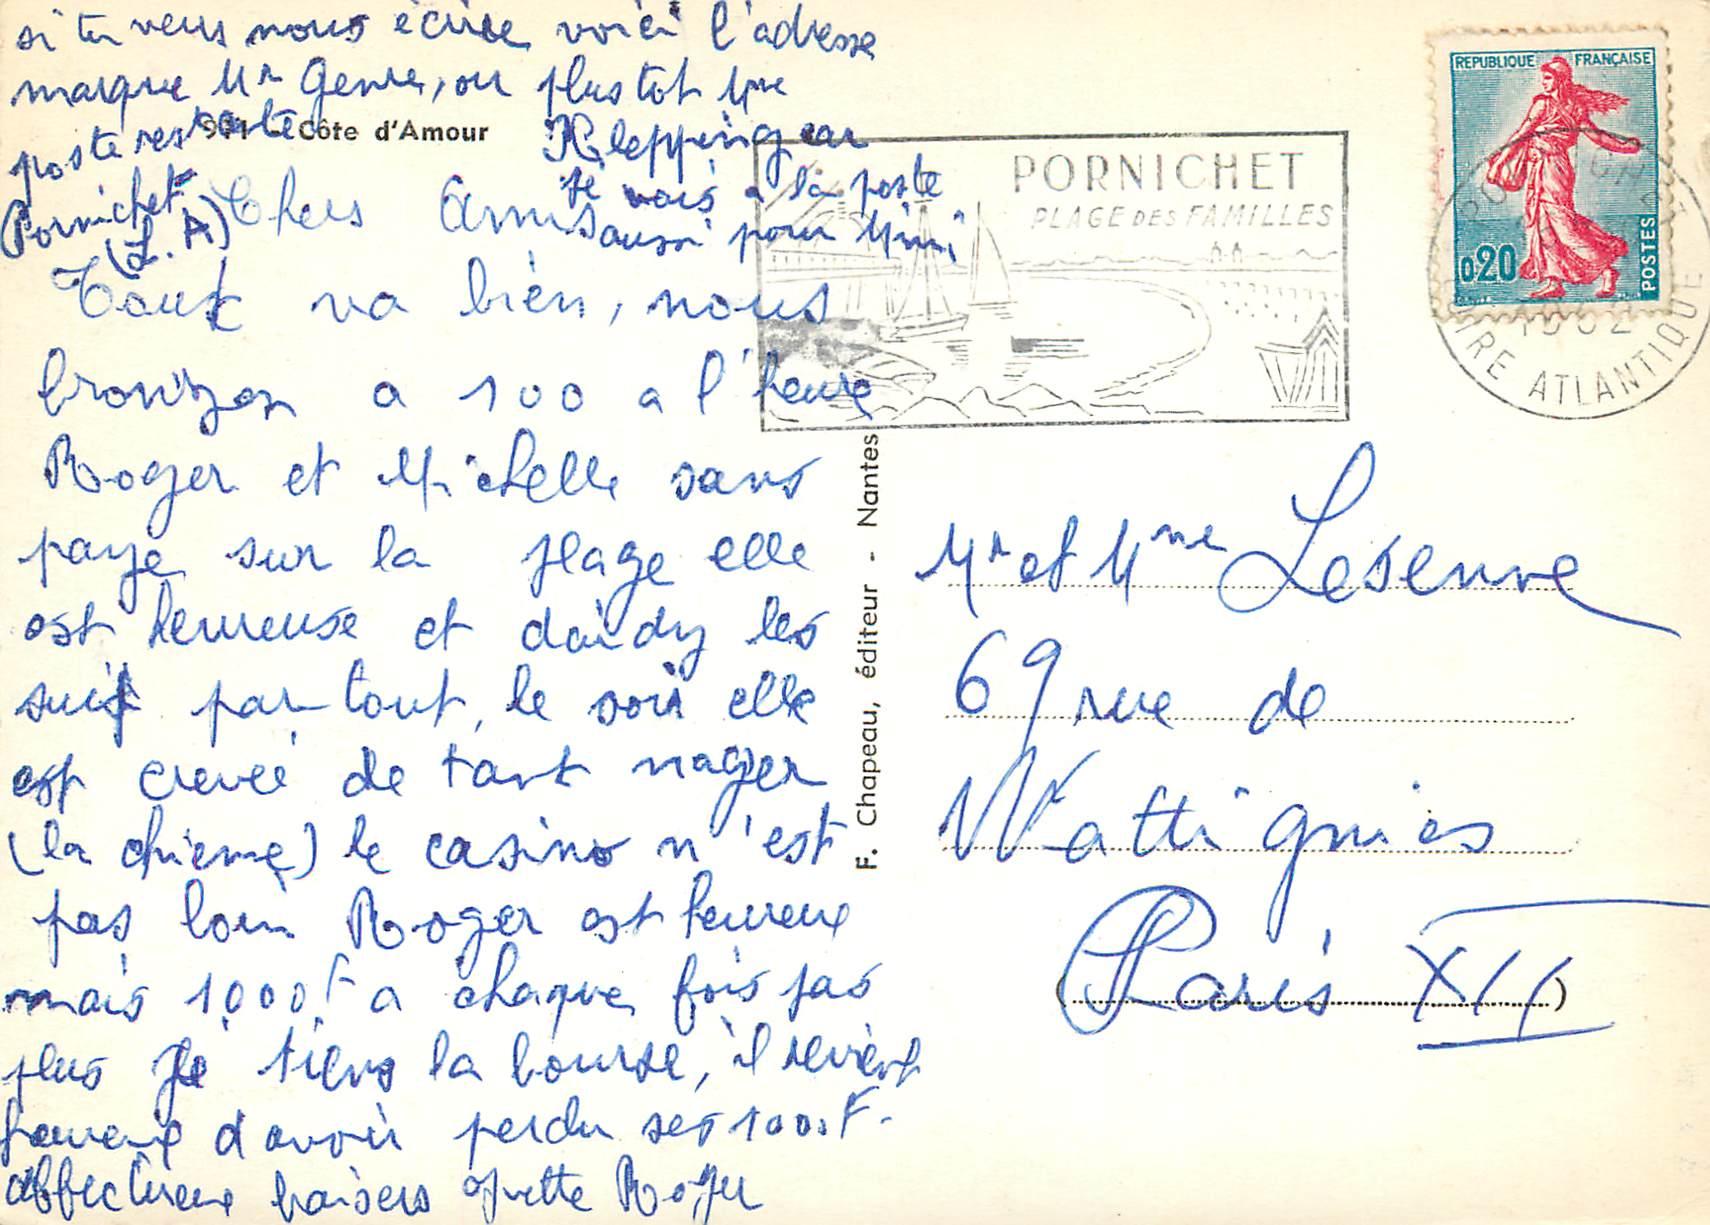 si tu veus nous écrire voici l'adresse
marque Mr Genre, ou plustot Mme
poste restante
Kleppeing car
Pornichet
(L. A)
je vais a la poste
aussi pour Mimi
911 - Côte d'Amour
Chers Amis
Tout va bien, nous
bronzon a 100 a l'heure
Roger et Michelle sans
paye sur la plage elle
est heureuse et daidy les
suit partout, le soir elle
est crevée de tant nager
(la chienne) le casino n'est
pas loin Roger est heureux
mais 1000F a chaque fois pas
plus je tiens la bourse, il revient
heureux d'avoir perdu ses 1000F.
affectueux baisers Yvette Roger
F. Chapeau, éditeur - Nantes
PORNICHET
PLAGE DES FAMILLES
REPUBLIQUE FRANÇAISE
0,20
POSTES
PORNICHET
1962
LOIRE ATLANTIQUE
Mr et Mme Leseuvre
69 rue de
Wattignies
(Paris XII)